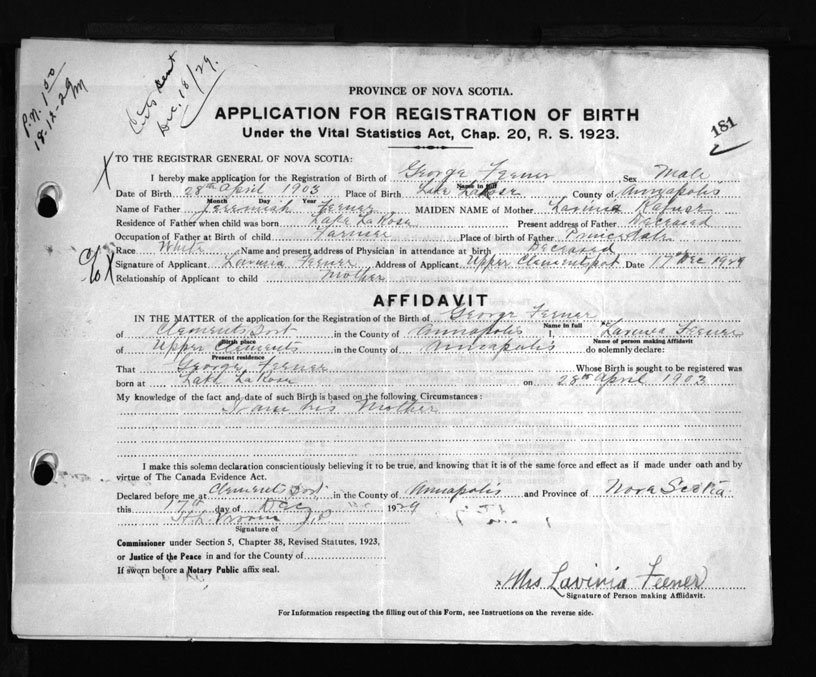 P.N. 1.50
18-12-29 M
Certs sent
Dec. 18/29.
181
PROVINCE OF NOVA SCOTIA.
APPLICATION FOR REGISTRATION OF BIRTH
Under the Vital Statistics Act, Chap. 20, R. S. 1923.
X TO THE REGISTRAR GENERAL OF NOVA SCOTIA:
I hereby make application for the Registration of Birth of George Feener Sex Male
Name in full
Date of Birth 28th April 1903 Place of Birth Lake LaRose County of Annapolis
Month Day Year
Name of Father Jeremiah Feener MAIDEN NAME of Mother Lavinia
Residence of Father when child was born Lake LaRose Present address of Father Deceased
Occupation of Father at Birth of child Farmer Place of birth of Father Princedale
Race White Name and present address of Physician in attendance at birth Deceased
c/o X Signature of Applicant Lavinia Feener Address of Applicant Upper Clementsport Date 17th Dec 1929
Relationship of Applicant to child Mother
AFFIDAVIT
IN THE MATTER of the application for the Registration of the Birth of George Feener
Name in full
of Clementsport in the County of Annapolis I, Lavinia Feener
Birth place Name of person making Affidavit
of Upper Clements in the County of Annapolis do solemnly declare:
Present residence
That George Feener Whose Birth is sought to be registered was
born at Lake LaRose on 28th April 1903
My knowledge of the fact and date of such Birth is based on the following Circumstances:
I am his Mother
I make this solemn declaration conscientiously believing it to be true, and knowing that it is of the same force and effect as if made under oath and by
virtue of The Canada Evidence Act.
Declared before me at Clementsport in the County of Annapolis and Province of Nova Scotia
this 17th day of Dec 1929
J.P.
Signature of
Commissioner under Section 5, Chapter 38, Revised Statutes, 1923,
or Justice of the Peace in and for the County of
If sworn before a Notary Public affix seal.
x Mrs Lavinia Feener
Signature of Person making Affidavit.
For Information respecting the filling out of this Form, see Instructions on the reverse side.